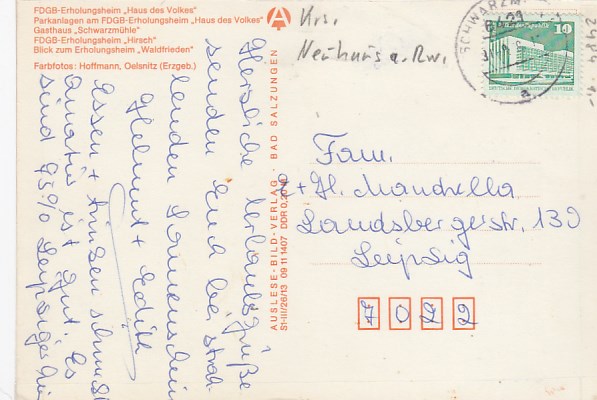 FDGB-Erholungsheim „Haus des Volkes"
Parkanlagen am FDGB-Erholungsheim „Haus des Volkes"
Gasthaus „Schwarzmühle"
FDGB-Erholungsheim „Hirsch"
Blick zum Erholungsheim „Waldfrieden"
Farbfotos: Hoffmann, Oelsnitz (Erzgeb.)
Krs.
Neuhaus a. Rw.
SCHWARZM
10
DEUTSCHE DEMOKRATISCHE REPUBLIK
AUSLESE-BILD-VERLAG · BAD SALZUNGEN
St-III/26/13 09 11 1407 DDR
Herzliche Urlaubsgrüße
senden Euch bei strah
lenden Sonnenschein
Helmut + Edith
Essen + trinken schmeckt
ist gut. Es
sind 95% Leipziger
Fam.
+ H. Mandrella
Landsbergerstr. 139
Leipzig
7022